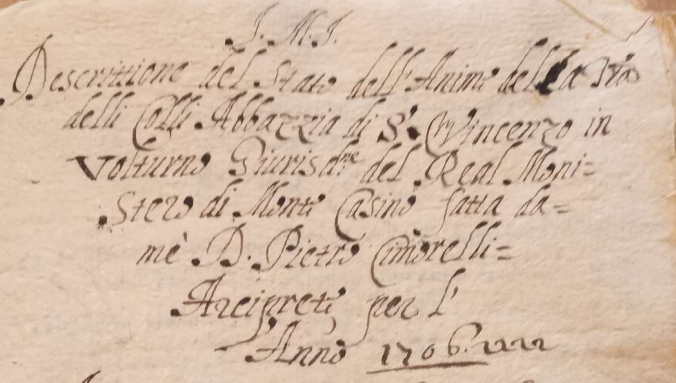 J. M. J.
Descrittione del Stato dell'Anime della Tra
delli Colli Abbazzia di S. Vincenzo in
Volturno Giurisdne del Real Moni=
stero di Monte Casino fatta da=
mè D. Pietro Cimorelli=
Arciprete per l'
Anno 1706.